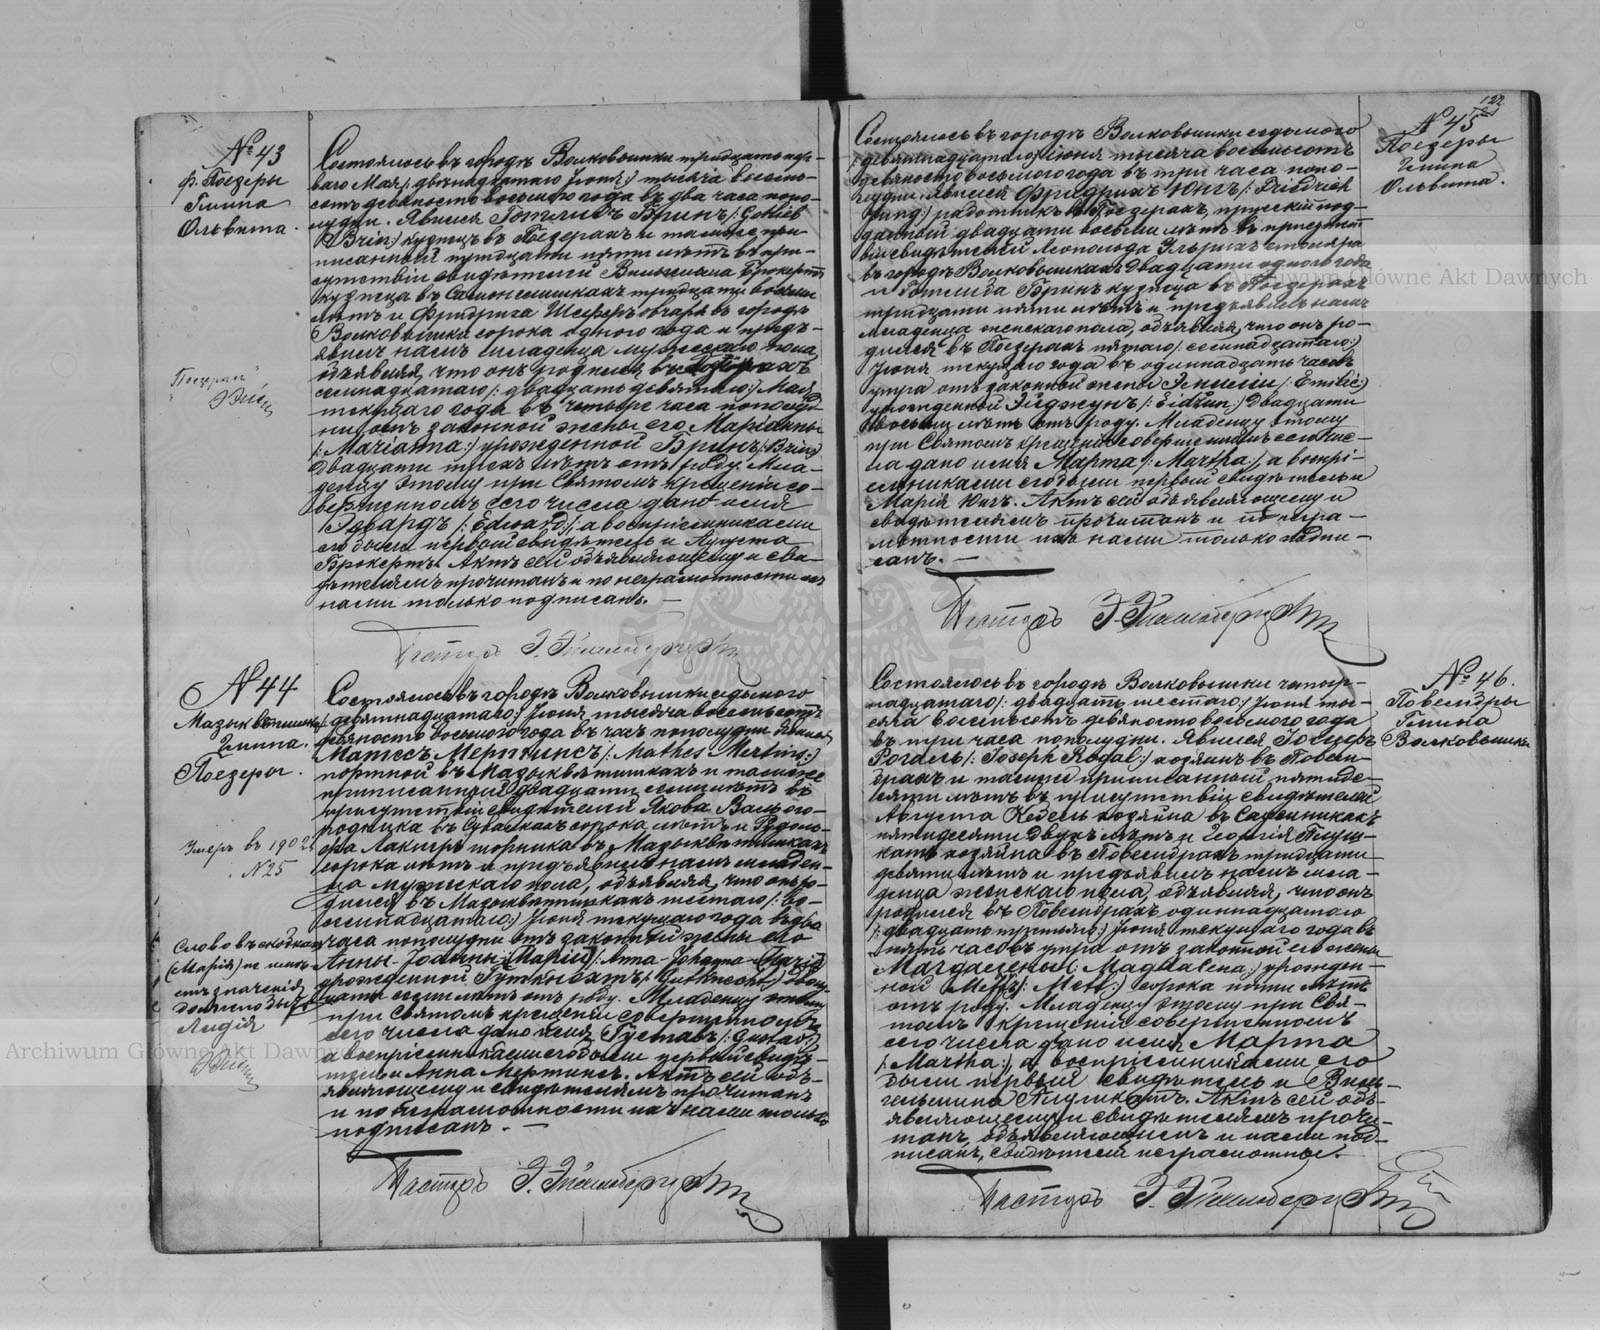 № 43
ф. Поезеры
Гмина
Ольвита.
Состоялось въ городѣ Волковышки тридцать пер-
ваго Мая /: двѣнадцатаго Іюня :/ тысяча восемь-
сотъ девяносто восьмаго года въ два часа попо-
лудни. Явился Готлибъ Бринъ /: Gotlieb
Brin :/ кузнецъ въ Поезерахъ и тамъ же при-
писанный тридцати пяти лѣтъ въ при-
сутствіи свидѣтелей Вильгельма Брокертъ
кузнеца въ тридцати восьми
лѣтъ и Фридриха Шеферъ овчаря въ городѣ
Волковышки сорока одного года и предъ-
явилъ намъ младенца мужескаго пола
объявляя, что онъ родился въ Поезерахъ
семнадцатаго /: двадцать девятаго :/ Мая
текущаго года въ четыре часа пополуд-
ни отъ законной жены его Маріанны
/: Marianna :/ урожденной Бринъ /: Brin :/
двадцати трехъ лѣтъ отъ роду. Мла-
денцу этому при Святомъ крещеніи со-
вершенномъ сего числа дано имя
Эдвардъ /: Edward :/ а воспріемниками
его были первый свидѣтель и Августа
Брокертъ. Актъ сей объявляющему и сви-
дѣтелямъ прочитанъ и по неграмотности ихъ
нами только подписанъ. —
"Поезерахъ"
Пасторъ Э.
№ 44
Мазыквѣтишки
Гмина.
Поезеры.
Умеръ въ 1902 г.
№ 25
Слово въ скобкахъ
(Марія) не имѣ-
етъ значенія
должно быть
Лидія
Состоялось въ городѣ Волковышки седьмого
/: девятнадцатаго :/ Іюня тысяча восемьсотъ
девяносто восьмого года въ часъ пополудни. Явился
Матесъ Мертинсъ /: Mathes Mertins :/
портной въ Мазыквѣтишкахъ и тамъ же
приписанный двадцати семи лѣтъ въ
присутствіи свидѣтелей Якова Валь ого-
родника въ сорока лѣтъ и Рудоль-
фа Лакнеръ шорника въ Мазыквѣтишкахъ
сорока лѣтъ и предъявилъ намъ младен-
ца мужскаго пола, объявляя, что онъ ро-
дился въ Мазыквѣтишкахъ шестаго /: во-
семнадцатаго :/ Іюня текущаго года въ два
часа пополудни отъ законной жены его
Анны-Іоанны (Маріи) /: Anna-Johanna-Maria :/
урожденной Гуткнехтъ /: Gutknecht :/ двад-
цати семи лѣтъ отъ роду. Младенцу этому
при Святомъ крещеніи совершенномъ
сего числа дано имя Густавъ /: Gustav :/
а воспріемниками его были первый свидѣ-
тель и Анна Мертинсъ. Актъ сей объ-
являющему и свидѣтелямъ прочитанъ
и по неграмотности ихъ нами только
подписанъ. —
Пасторъ Э.
122
№ 45
Поезеры
Гмина
Ольвита.
Состоялось въ городѣ Волковышки седьмого
/: девятнадцатаго :/ Іюня тысяча восемьсотъ
девяносто восьмого года въ три часа попо-
лудни. Явился Фридрихъ Юнгъ /: Friedrich
Jung :/ работникъ въ Поезерахъ, прусскій под-
данный двадцати восьми лѣтъ въ присутст-
віи свидѣтелей Леопольда Ульрихъ столяра
въ городѣ Волковышкахъ двадцати одного года
и Готлиба Бринъ кузнеца въ Поезерахъ
тридцати пяти лѣтъ и предъявилъ намъ
младенца женскаго пола, объявляя, что онъ ро-
дился въ Поезерахъ пятаго /: семнадцатаго :/
Іюня текущаго года въ одиннадцать часовъ
утра отъ законной жены Эмиліи /: Emilie :/
урожденной Эйджунъ /: Eidżun :/ двадцати
восьми лѣтъ отъ роду. Младенцу этому
при Святомъ крещеніи совершенномъ сего чис-
ла дано имя Марта /: Martha :/, а воспрі-
емниками его были первый свидѣтель и
Марія Юнгъ. Актъ сей объявляющему и
свидѣтелямъ прочитанъ и по негра-
мотности ихъ нами только подпи-
санъ. —
Пасторъ Э.
№ 46.
Повембры
Гмина
Волковышки
Состоялось въ городѣ Волковышки четыр-
надцатаго /: двадцать шестаго :/ Іюня ты-
сяча восемьсотъ девяносто восьмого года
въ три часа пополудни. Явился Іосифъ
Рогаль /: Joseph Rogal :/ хозяинъ въ Повем-
брахъ и тамъ же приписанный пятиде-
сяти лѣтъ въ присутствіи свидѣтелей
Августа Кедель хозяина въ
пятидесяти двухъ лѣтъ и Георгія Плуш-
катъ хозяина въ Повембрахъ тридцати
девяти лѣтъ и предъявилъ намъ мла-
денца женскаго пола, объявляя, что онъ
родился въ Повембрахъ одиннадцатаго
/: двадцать третьяго :/ Іюня текущаго года въ
пять часовъ утра отъ законной его жены
Магдалены /: Magdalena :/ урожден-
ной сорока пяти лѣтъ
отъ роду. Младенцу этому при Свя-
томъ крещеніи совершенномъ
сего числа дано имя Марта
/: Martha :/, а воспріемниками его
были первый свидѣтель и Виль-
гельмина Плушкатъ. Актъ сей объ-
являющему и свидѣтелямъ прочи-
танъ, объявляющимъ и нами под-
писанъ, свидѣтели неграмотные.
Пасторъ Э.
Archiwum Główne Akt Dawnych
Archiwum Główne Akt Dawnych